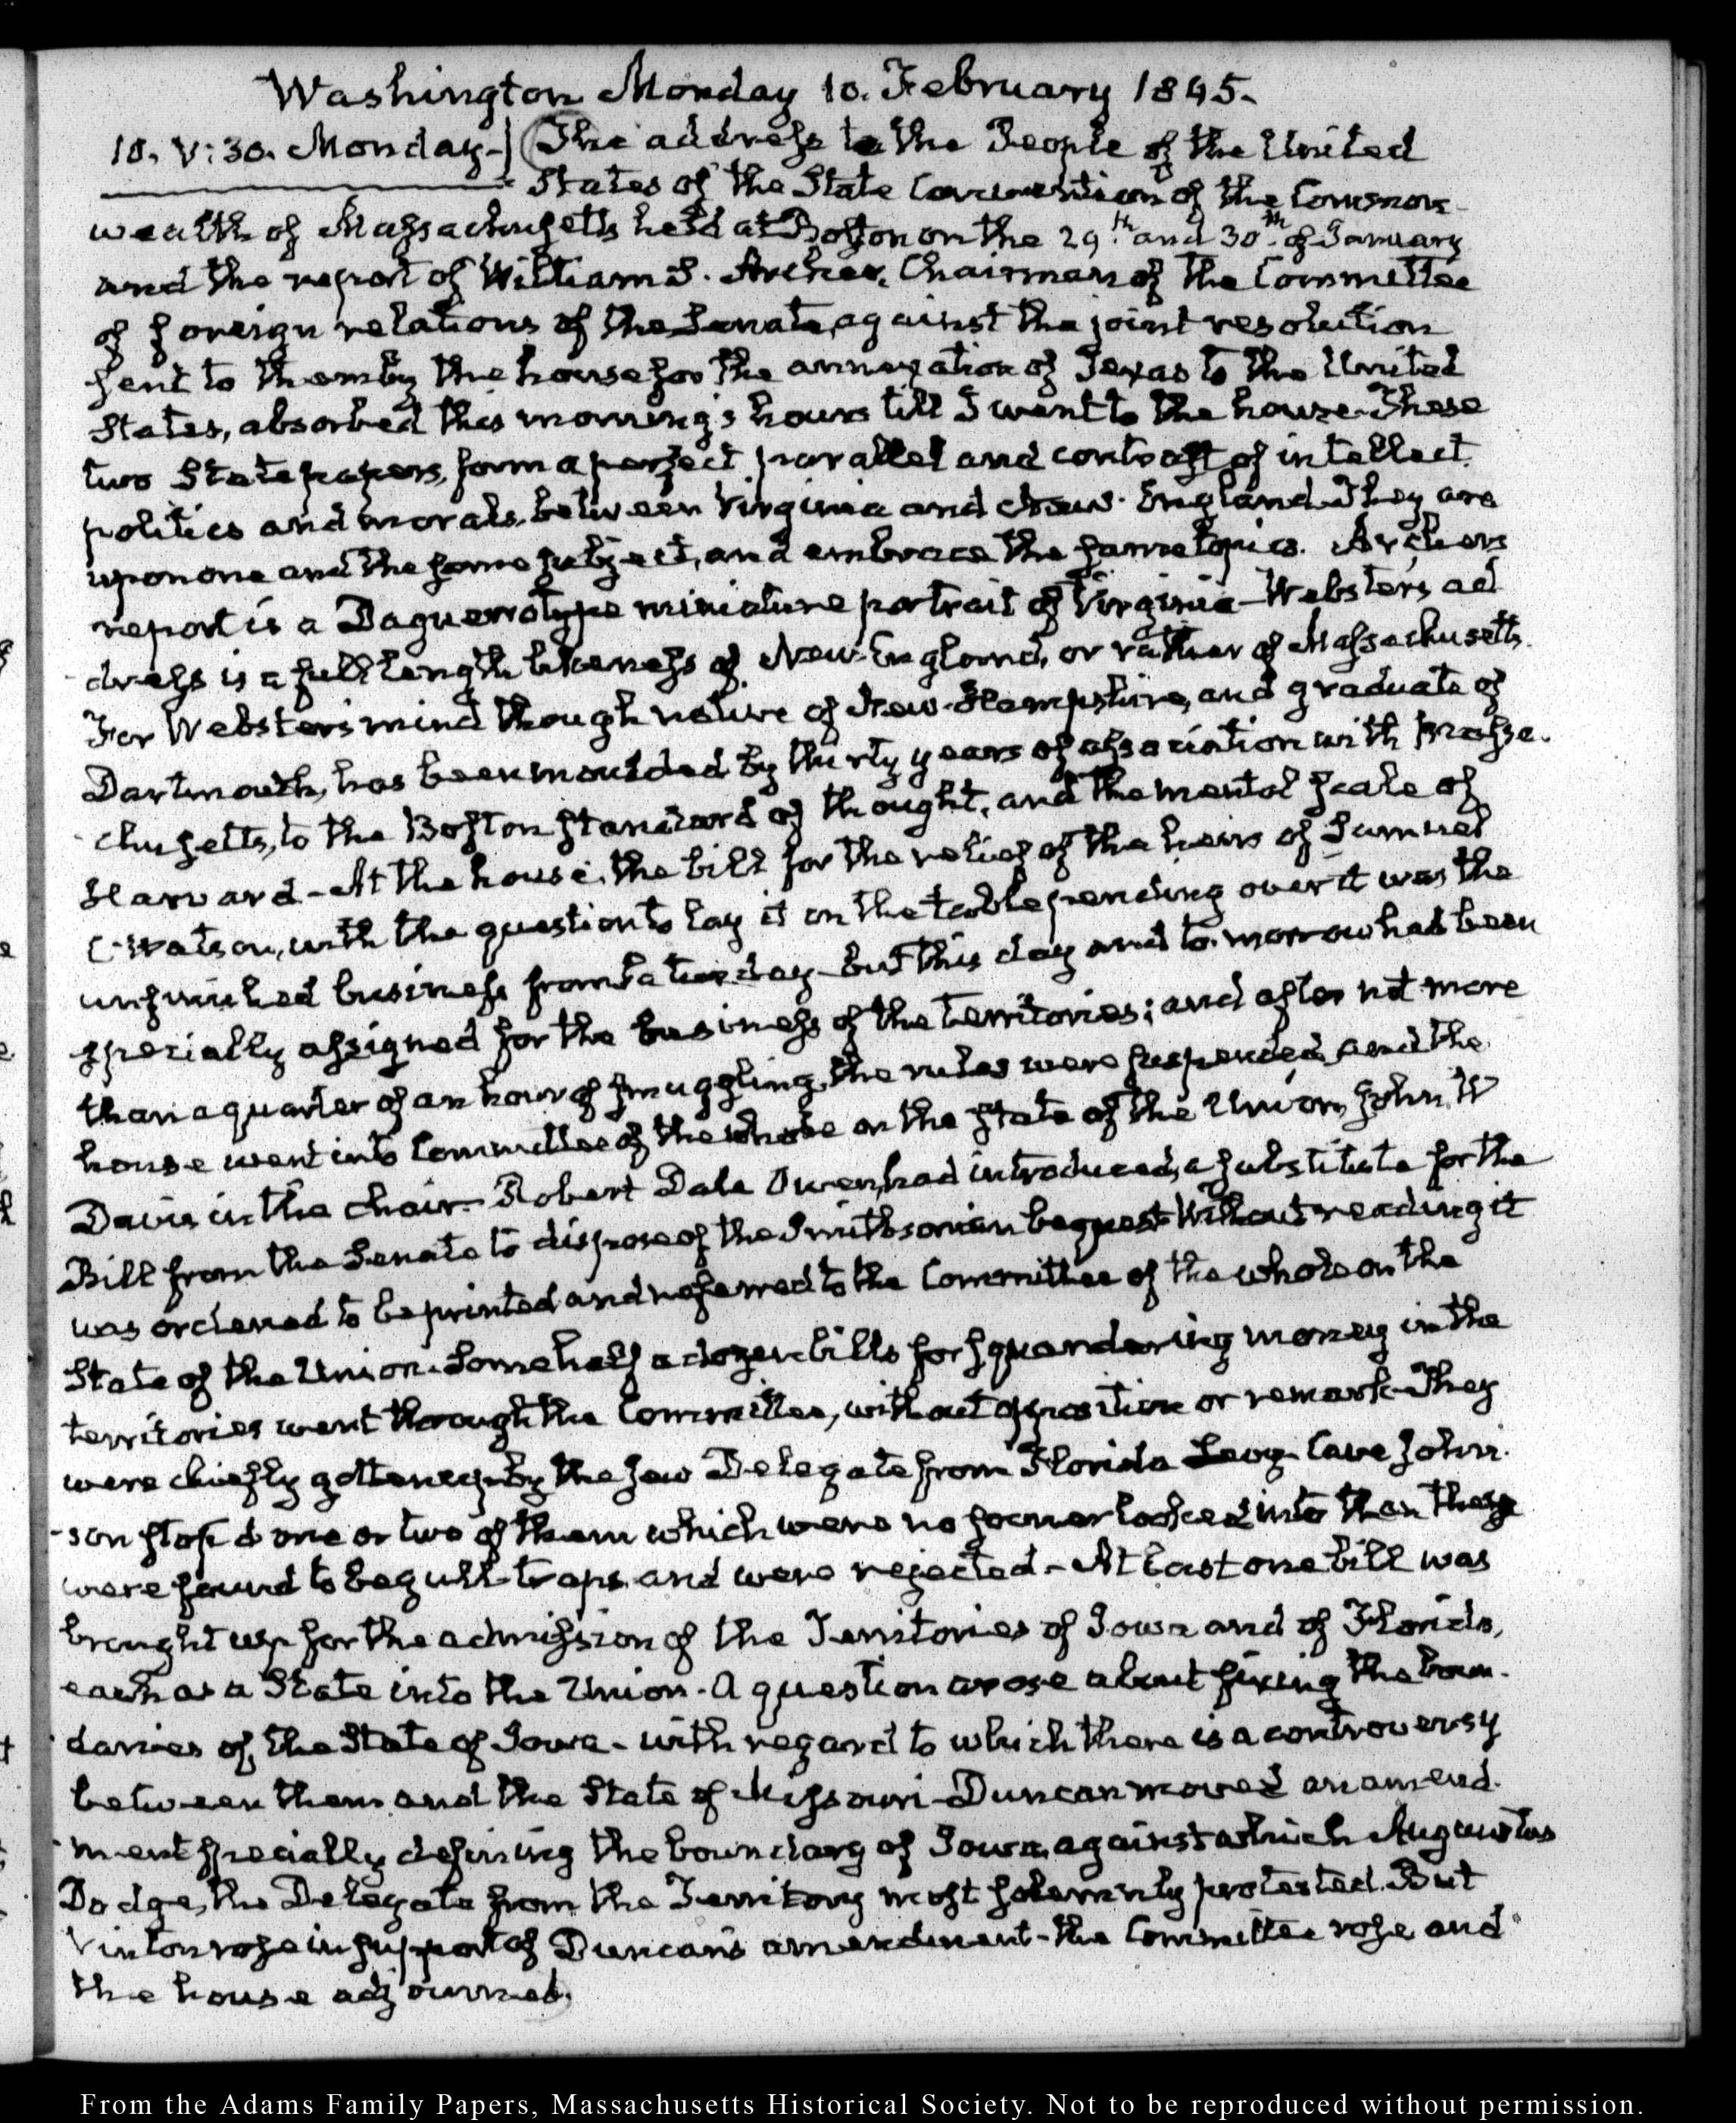 Washington Monday 10. February 1845.
10. V:30. Monday-| (The address to the People of the United
States of the State Convention of the Common-
wealth of Massachusetts held at Boston on the 29th and 30th of January
and the report of William S. Archer, Chairman of the Committee
of foreign relations of the Senate, against the joint resolution
sent to them by the house for the annexation of Texas to the United
States, absorbed this morning's hours till I went to the house. These
two State papers, form a perfect parallel and contrast of intellect,
politics and morals, between Virginia and New-England. They are
upon one and the same subject, and embrace the same topics. Archers
report is a Daguerrotype miniature portrait of Virginia-Websters ad
dress is a full length likeness of New-England, or rather of Massachusetts.
For Webster's mind though native of New-Hampshire, and graduate of
Dartmouth, has been moulded by thirty years of association with Massa-
chusetts, to the Boston standard of thought, and the mental scale of
Harvard-At the house, the bill for the relief of the heirs of Samuel
C. Watson, with the question to lay it on the table pending over it was the
unfinished business from Saturday-but this day and to-morrow had been
specially assigned for the business of the territories; and after not more
than a quarter of an hour of smuggling, the rules were suspended, and the
house went into Committee of the whole on the state of the Union, John. W
Davis in the chair-Robert Dale Owen, had introduced, a substitute for the
Bill from the Senate to dispose of the Smithsonian bequest-Without reading it
was ordered to be printed and referred to the Committee of the whole on the
State of the Union. Some half a dozen bills for squandering money in the
territories went through the Committee, without opposition or remark-They
were chiefly gotten up by the Jew Delegate from Florida Levy-Cave John-
-son stop'd one or two of them which were no sooner looked into than they
were found to be gull-traps, and were rejected-At last one bill was
brought up for the admission of the Territories of Iowa and of Florida,
each as a State into the Union-A question arose about fixing the boun-
daries of, the State of Iowa-with regard to which there is a controversy
between them and the State of Missouri-Duncan moved an amend-
-ment specially defining the boundary of Iowa, against which Augustus
Dodge, the Delegate from the Territory most solemnly protested. But
Vinton rose in support of Duncan's amendment-the Committee rose and
the house adjourned.
From the Adams Family Papers, Massachusetts Historical Society. Not to be reproduced without permission.